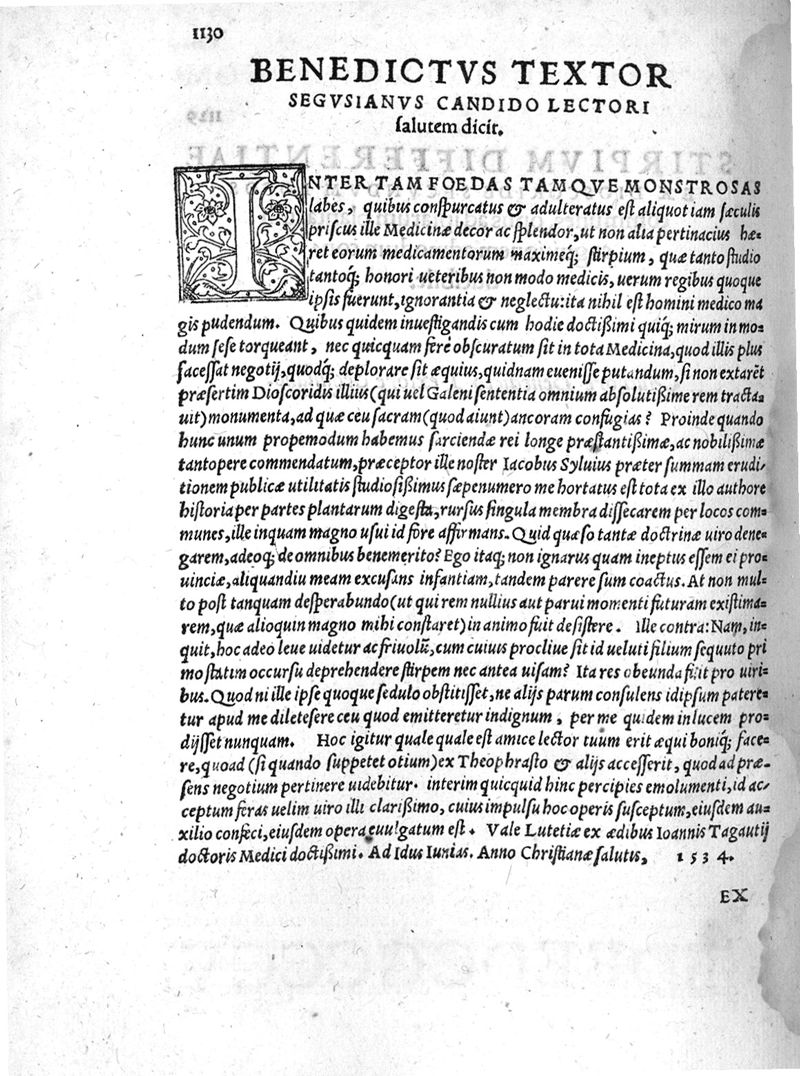 1130
BENEDICTVS TEXTOR
SEGVSIANVS CANDIDO LECTORI
salutem dicit.
INTER TAM FOEDAS TAMQVE MONSTROSAS
labes, quibus conspurcatus & adulteratus est aliquot iam sæculis
priscus ille Medicinæ decor ac splendor, ut non alia pertinacius hæ=
ret eorum medicamentorum maximeq́; stirpium, quæ tanto studio
tantoq́; honori ueteribus non modo medicis, uerum regibus quoque
ipsis fuerunt, ignorantia & neglectu: ita nihil est homini medico ma
gis pudendum. Quibus quidem inuestigandis cum hodie doctißimi quiq́; mirum in mo=
dum sese torqueant, nec quicquam ferè obscuratum sit in tota Medicina, quod illis plus
facessat negotij, quodq́; deplorare sit æquius, quidnam euenisse putandum, si non extarēt
præsertim Dioscoridis illius (qui uel Galeni sententia omnium absolutißime rem tracta=
uit) monumenta, ad quæ ceu sacram (quod aiunt) ancoram confugias? Proinde quando
hunc unum propemodum habemus sarciendæ rei longe præstantißimæ, ac nobilißimæ
tantopere commendatum, præceptor ille noster Iacobus Syluius præter summam erudi=
tionem publicæ utilitatis studiosißimus sæpenumero me hortatus est tota ex illo authore
historia per partes plantarum digesta, rursus singula membra dissecarem per locos com=
munes, ille inquam magno usui id fore affirmans. Quid quæso tantæ doctrinæ uiro dene=
garem, adeoq́; de omnibus benemerito? Ego itaq; non ignarus quam ineptus essem ei pro=
uinciæ, aliquandiu meam excusans infantiam, tandem parere sum coactus. At non mul=
to post tanquam desperabundo (ut qui rem nullius aut parui momenti futuram existima=
rem, quæ alioquin magno mihi constaret) in animo fuit desistere. Ille contra: Nam, in=
quit, hoc adeo leue uidetur ac friuolū, cum cuiuis procliue sit id ueluti filium sequuto pri
mo statim occursu deprehendere stirpem nec antea uisam? Ita res obeunda fuit pro uiri=
bus. Quod ni ille ipse quoque sedulo obstitisset, ne alijs parum consulens idipsum patere=
tur apud me diletesere ceu quod emitteretur indignum, per me quidem in lucem pro=
dijsset nunquam. Hoc igitur quale quale est amice lector tuum erit æqui boniq́; face=
re, quoad (si quando suppetet otium) ex Theophrasto & alijs accesserit, quod ad præ=
sens negotium pertinere uidebitur. interim quicquid hinc percipies emolumenti, id ac=
ceptum feras uelim uiro illi clarißimo, cuius impulsu hoc operis susceptum, eiusdem au=
xilio confeci, eiusdem opera euulgatum est. Vale Lutetiæ ex ædibus Ioannis Tagautij
doctoris Medici doctißimi. Ad Idus Iunias. Anno Christianæ salutis, 1534.
EX